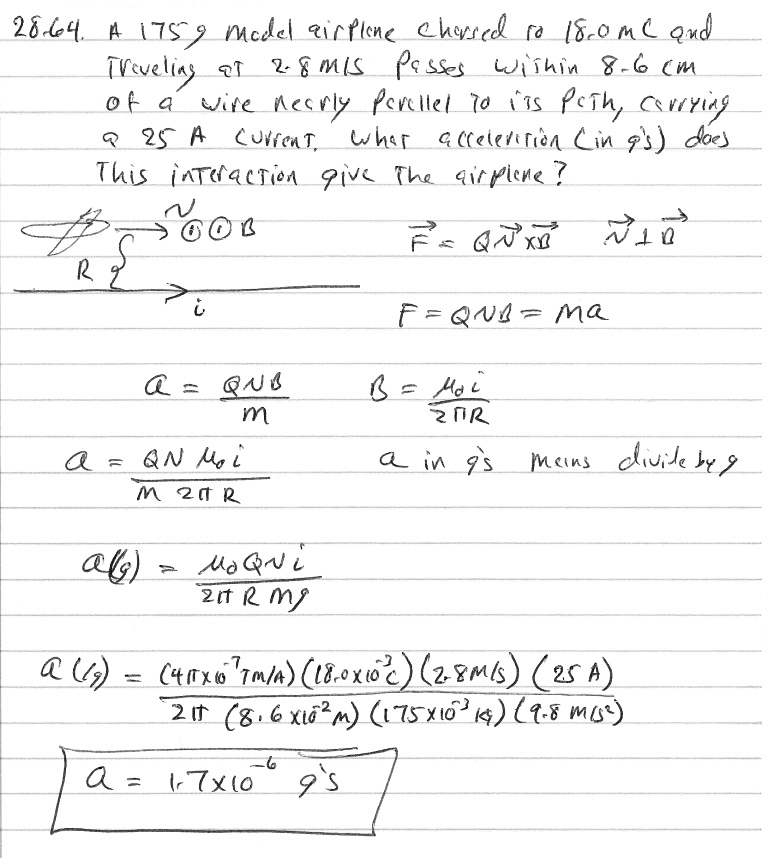 28.64. A 175 g model airplane charged to 18.0 mC and
traveling at 2.8 m/s passes within 8.6 cm
of a wire nearly parallel to its path, carrying
a 25 A current. What acceleration (in g's) does
this interaction give the airplane?
v B
R
i
F = Qv×B v⊥B
F = QvB = ma
a = QvB / m B = μ₀i / 2πR
a = Qv μ₀i / m 2π R a in g's means divide by g
a(g) = μ₀Qvi / 2π R mg
a (/g) = (4π×10⁻⁷Tm/A)(18.0×10⁻³C)(2.8m/s)(25 A)
2π (8.6×10⁻²m)(175×10⁻³ kg)(9.8 m/s²)
a = 1.7×10⁻⁶ g's